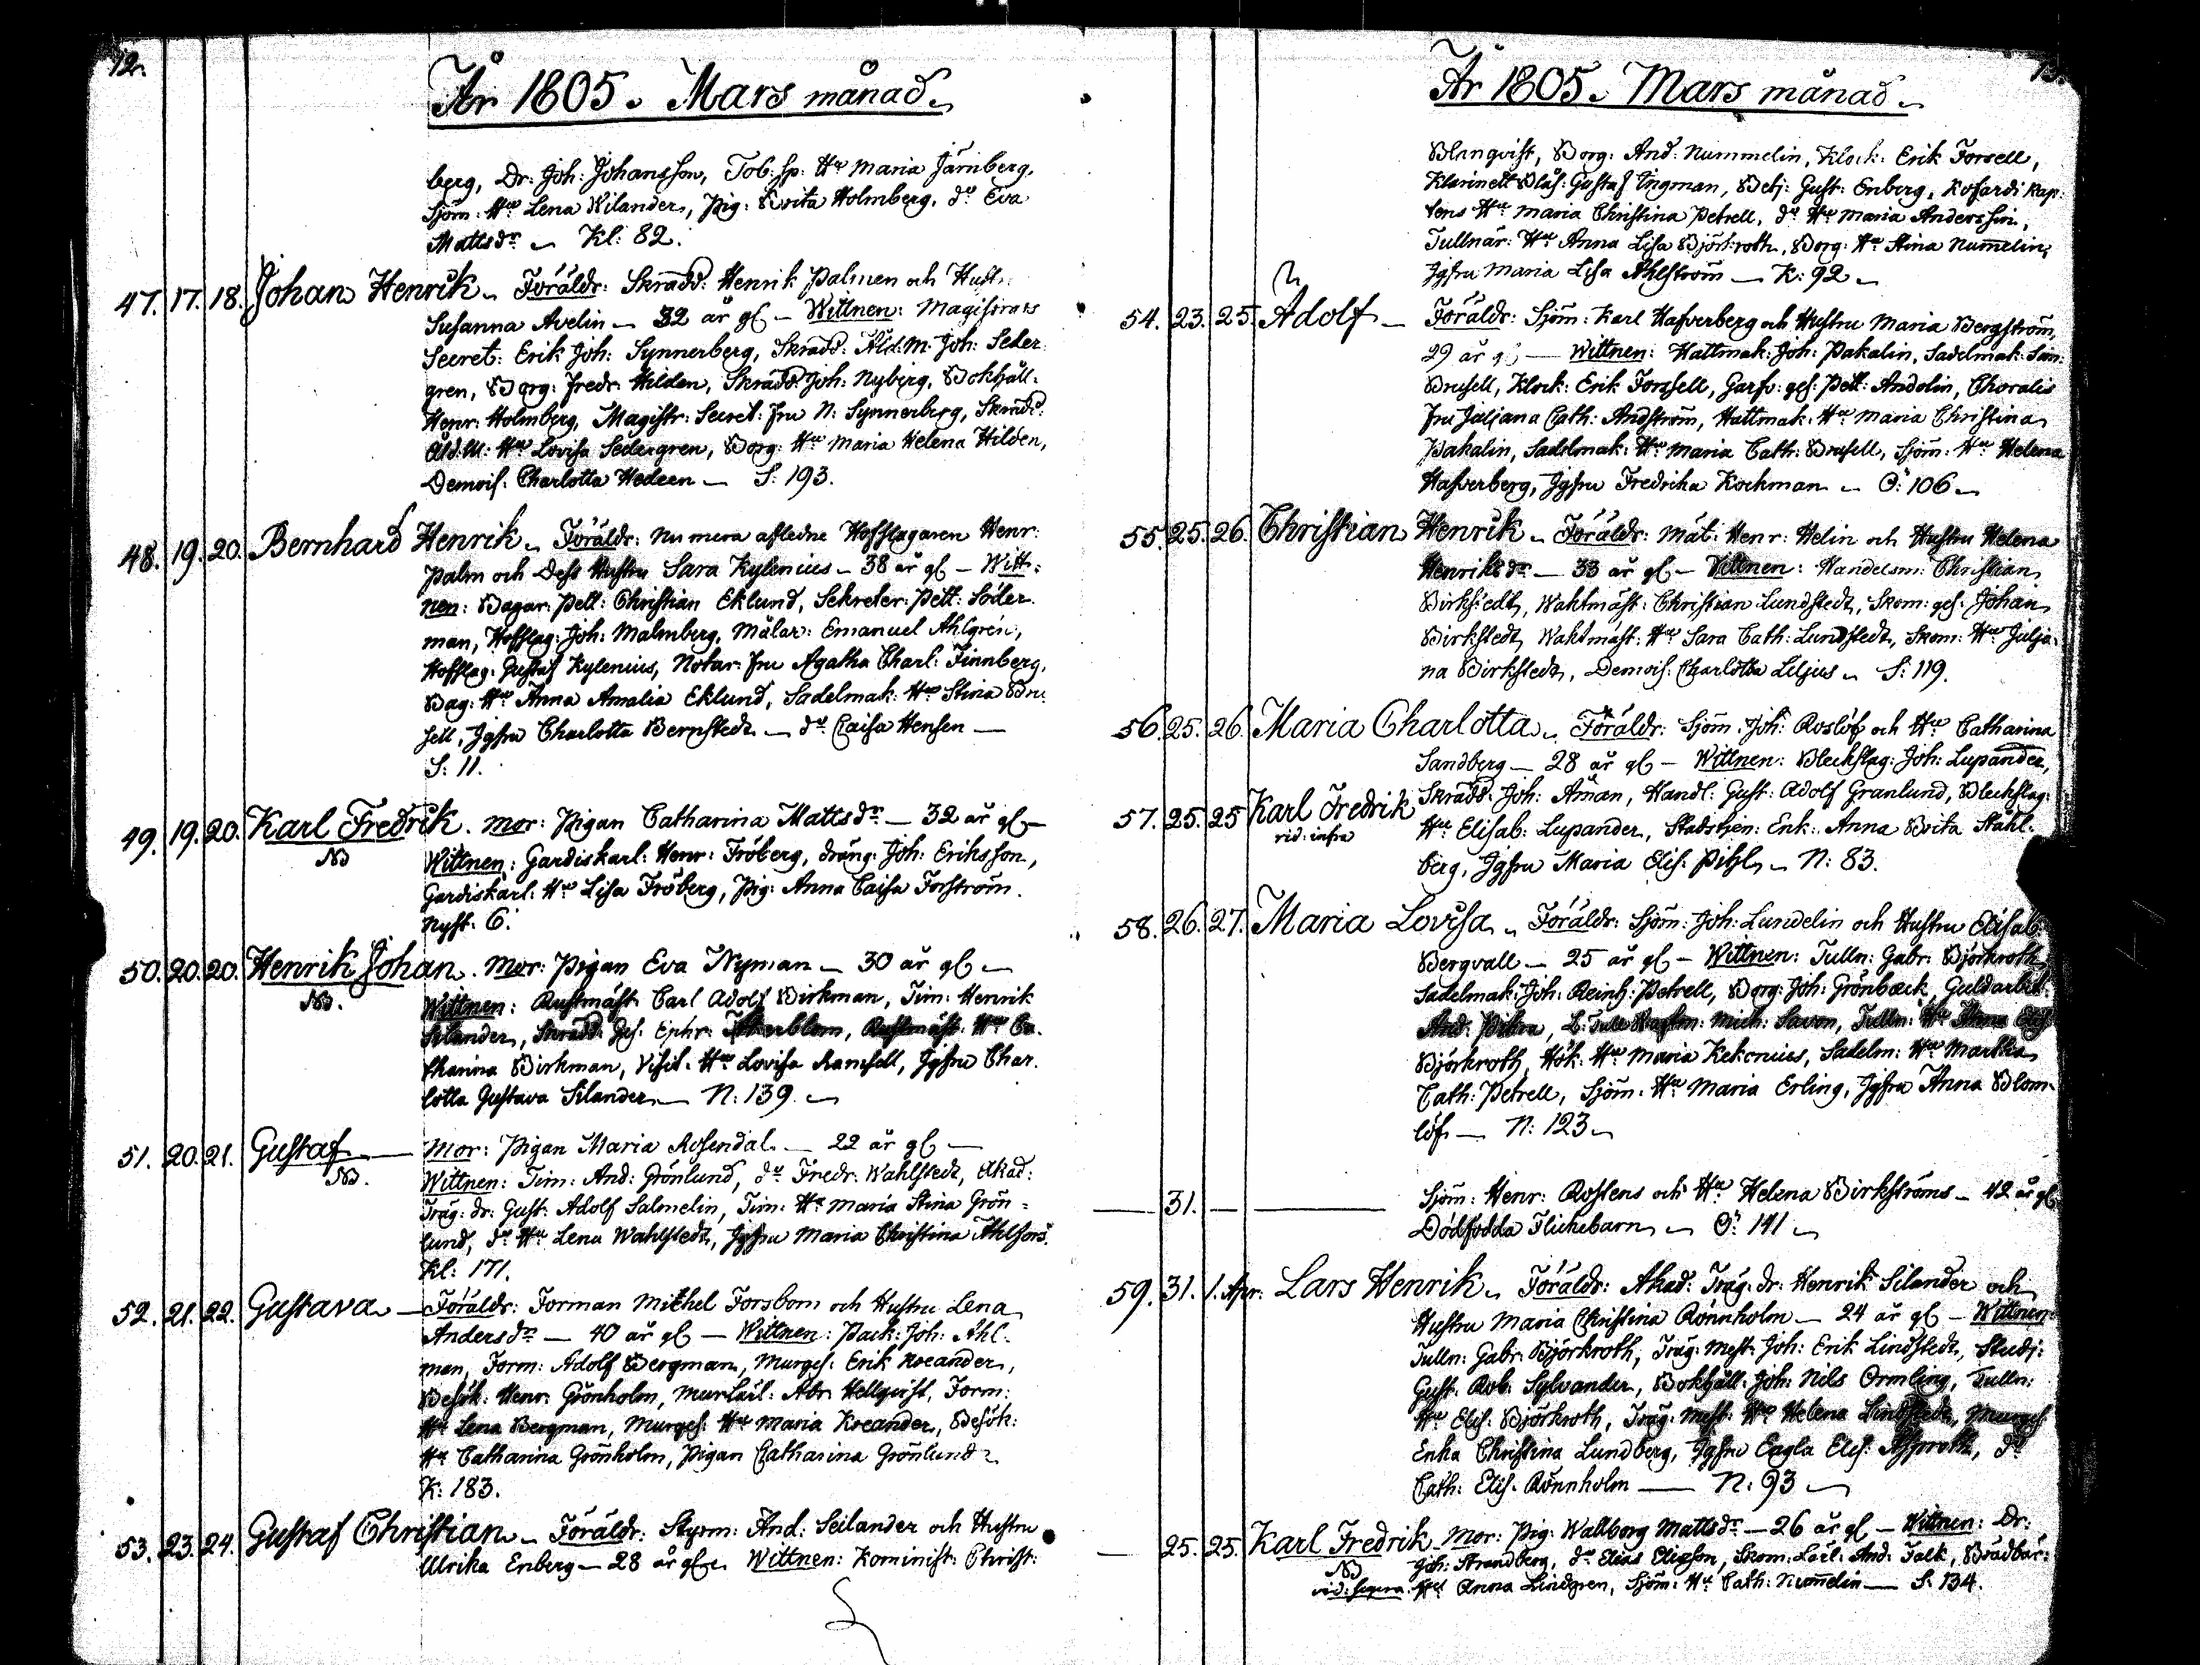 12.
År 1805. Mars månad.
berg, Dr: Joh: Johansson, Tob: sp: Hu Maria Järnberg,
Sjöm: Hu Lena Wilander, Pig: Brita Holmberg, do Eva
Mattsdr Kl: 82.
47. 17. 18. Johan Henrik Föräldr: Skrädd: Henrik Palmen och Hust:
Susanna Avelin 32 år gl Wittnen: Magistrats
Secret: Erik Joh: Synnerberg, Skrädd: Åld:M: Joh: Seder
gren, Borg: Fredr: Hilden, Skrädd: Joh: Nyberg, Bokhåll:
Henr: Holmberg, Magistr: Secret: Fru N: Synnerberg, Skrädd:
Åld:M: Hu Lovisa Sedergren, Borg: Hu Maria Helena Hilden,
Demois: Charlotta Hedeen S: 193.
48. 19. 20. Bernhard Henrik Föräldr: Nu mera afledne Hofslagaren Henr:
Palm och Dess Hustru Sara Kylenius 38 år gl Witt:
nen: Bagar: Pett: Christian Eklund, Sekreter: Pett: Söder
man, Hofslag: Joh: Malmberg, Målar: Emanuel Ahlgren,
Hofslag: Gustaf Kylenius, Notar: Fru Agatha Charl: Finnberg,
Bag: Hu Anna Amalia Eklund, Sadelmak: Hu Stina Bru
sell, Jgfru Charlotta Bernstedt do Caisa Hensen
S: 11.
49. 19. 20. Karl Fredrik. Mor: Pigan Catharina Mattsdr 32 år gl
Wittnen: Gardiskarl: Henr: Fröberg, dräng: Joh: Eriksson,
Gardiskarl: Hu Lisa Fröberg, Pig: Anna Caisa Forström.
Nyst: 6.
50. 20. 20. Henrik Johan. Mor: Pigan Eva Nyman 30 år gl
Wittnen: Rustmäst: Carl Adolf Birkman, Tim: Henrik
Silander, Skrädd: Ges: Ephr: Rustmäst: Hu Ca
tharina Birkman, Visit: Hu Lovisa Ramsell, Jgfru Char
lotta Gustava Silander N: 139.
51. 20. 21. Gustaf Mor: Pigan Maria Rosendal 22 år gl
Wittnen: Tim: And: Grönlund, do Fredr: Wahlstedt, Akad:
Träg: dr: Gust: Adolf Salmelin, Tim: Hu Maria Stina Grön
lund, do Hu Lena Wahlstedt, Jgfru Maria Christina Ahlfors.
Kl: 171.
52. 21. 22. Gustava Föräldr: Forman Michel Forsbom och Hustru Lena
Andersdr 40 år gl Wittnen: Pack: Joh: Ahl
man, Form: Adolf Bergman, Murges: Erik Kreander,
Besök: Henr: Grönholm, Murlärl: Abr: Hellqvist, Form:
Hu Lena Bergman, Murges: Hu Maria Kreander, Besök:
Hu Catharina Grönholm, Pigan Catharina Grönlund
K: 183.
53. 23. 24. Gustaf Christian Föräldr: Styrm: And: Seilander och Hustru
Ulrika Enberg 28 år gl Wittnen: Kominist: Christ:
År 1805. Mars månad.
Blanqvist, Borg: And: Nummelin, Klock: Erik Forsell,
Klarinett Blås: Gustaf Ingman, Betj: Gust: Enberg, Kofardi Kap:
tens Hu Maria Christina Petrell, do Hu Maria Andersson,
Tullnär: Hu Anna Lisa Björkroth, Borg: Hu Stina Numelin,
Jgfru Maria Lisa Ahlström K: 92
54. 23. 25. Adolf Föräldr: Sjöm: Karl Hafverberg och Hustru Maria Bergström,
29 år gl Wittnen: Hattmak: Joh: Pakalin, Sadelmak: Sam:
Brusell, Klock: Erik Forssell, Garfv: ges: Pett: Andolin, Choralis
Fru Juliana Cath: Andström, Hattmak: Hu Maria Christina
Pakalin, Sadelmak: Hu Maria Cath: Brusell, Sjöm: Hu Helena
Hafverberg, Jgfru Fredrika Kockman Ö: 106
55. 25. 26. Christian Henrik Föräldr: Mät: Henr: Helin och Hustru Helena
Henriksdr 33 år gl Wittnen: Handelsm: Christian
Birkstedt, Waktmäst: Christian Lundstedt, Skom: ges: Johan
Birkstedt, Waktmäst: Hu Sara Cath: Lundstedt, Skom: Hu Julja
na Birkstedt, Demois: Charlotta Liljus S: 119.
56. 25. 26. Maria Charlotta Föräldr: Sjöm: Joh: Roslöf och Hu Catharina
Sandberg 28 år gl Wittnen: Bleckslag: Joh: Lupander,
57. 25. 25 Karl Fredrik Skrädd: Joh: Åman, Handl: Gust: Adolf Granlund, Bleckslag:
vid: infra Hu Elisab: Lupander, Stadstjen: Enk: Anna Brita Stahl
berg, Jgfru Maria Elis: Pihl N: 83.
58. 26. 27. Maria Lovisa Föräldr: Sjöm: Joh: Lundelin och Hustru Elisab:
Bergvall 25 år gl Wittnen: Tulln: Gabr: Björkroth,
Sadelmak: Joh: Reinh: Petrell, Borg: Joh: Grönback, Guldarbet:
And: Mich: Savon, Tulln: Hu Anna Elis:
Björkroth, Hök: Hu Maria Kekonius, Sadelm: Hu Martha
Cath: Petrell, Sjöm: Hu Maria Erling, Jgfru Anna Blom
löf N: 123
31. Sjöm: Henr: Roslens och Hu Helena Birkströms 42 år gl
Dödfödda Flickebarn Ö: 141
59. 31. 1. Apr: Lars Henrik Föräldr: Akad: Träg: dr: Henrik Silander och
Hustru Maria Christina Rönnholm 24 år gl Wittnen:
Tulln: Gabr: Björkroth, Träg: Mest: Joh: Erik Lindstedt, Studj:
Gust: Rob: Sylvander, Bokhåll: Joh: Nils Ormling, Tulln:
Hu Elis: Björkroth, Träg: Mest: Hu Helena Lindstedt, Murges:
Enka Christina Lundberg, Jgfru Cagla Elis: do
Cath: Elis: Rönnholm N: 93
25. 25. Karl Fredrik Mor: Pig: Wallborg Mattsdr 26 år gl Wittnen: Dr:
Joh: Strandberg, do Elias Eliasson, Skom: Lärl: And: Falk, Brädbär:
vid: supra. Hu Anna Lindgren, Sjöm: Hu Cath: Numelin S: 134.